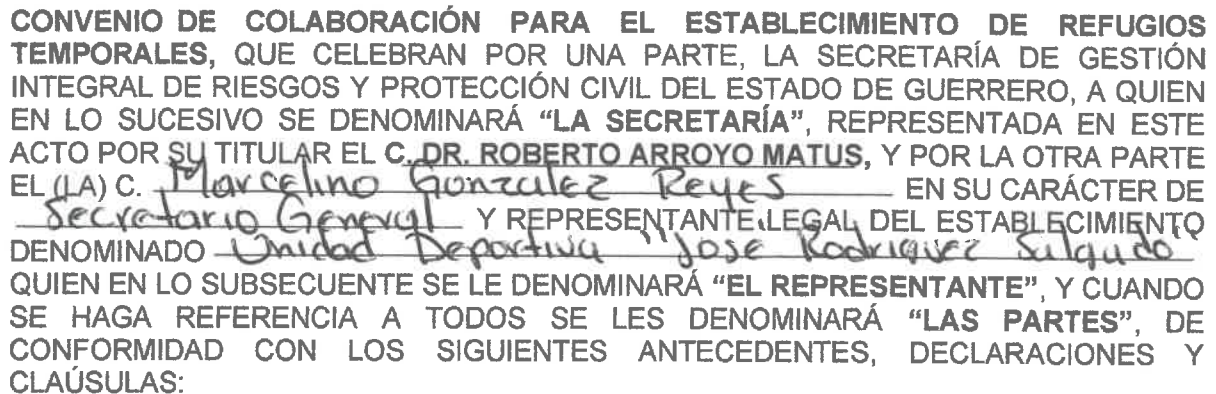 CONVENIO DE COLABORACIÓN PARA EL ESTABLECIMIENTO DE REFUGIOS
TEMPORALES, QUE CELEBRAN POR UNA PARTE, LA SECRETARÍA DE GESTIÓN
INTEGRAL DE RIESGOS Y PROTECCIÓN CIVIL DEL ESTADO DE GUERRERO, A QUIEN
EN LO SUCESIVO SE DENOMINARÁ “LA SECRETARÍA”, REPRESENTADA EN ESTE
ACTO POR SU TITULAR EL C. DR. ROBERTO ARROYO MATUS, Y POR LA OTRA PARTE
EL (LA) C. Marcelino Gonzalez Reyes EN SU CARÁCTER DE
Secretario General Y REPRESENTANTE LEGAL DEL ESTABLECIMIENTO
DENOMINADO Unidad Deportiva "Jose Rodriguez Salgado"
QUIEN EN LO SUBSECUENTE SE LE DENOMINARÁ “EL REPRESENTANTE”, Y CUANDO
SE HAGA REFERENCIA A TODOS SE LES DENOMINARÁ “LAS PARTES”, DE
CONFORMIDAD CON LOS SIGUIENTES ANTECEDENTES, DECLARACIONES Y
CLAÚSULAS: